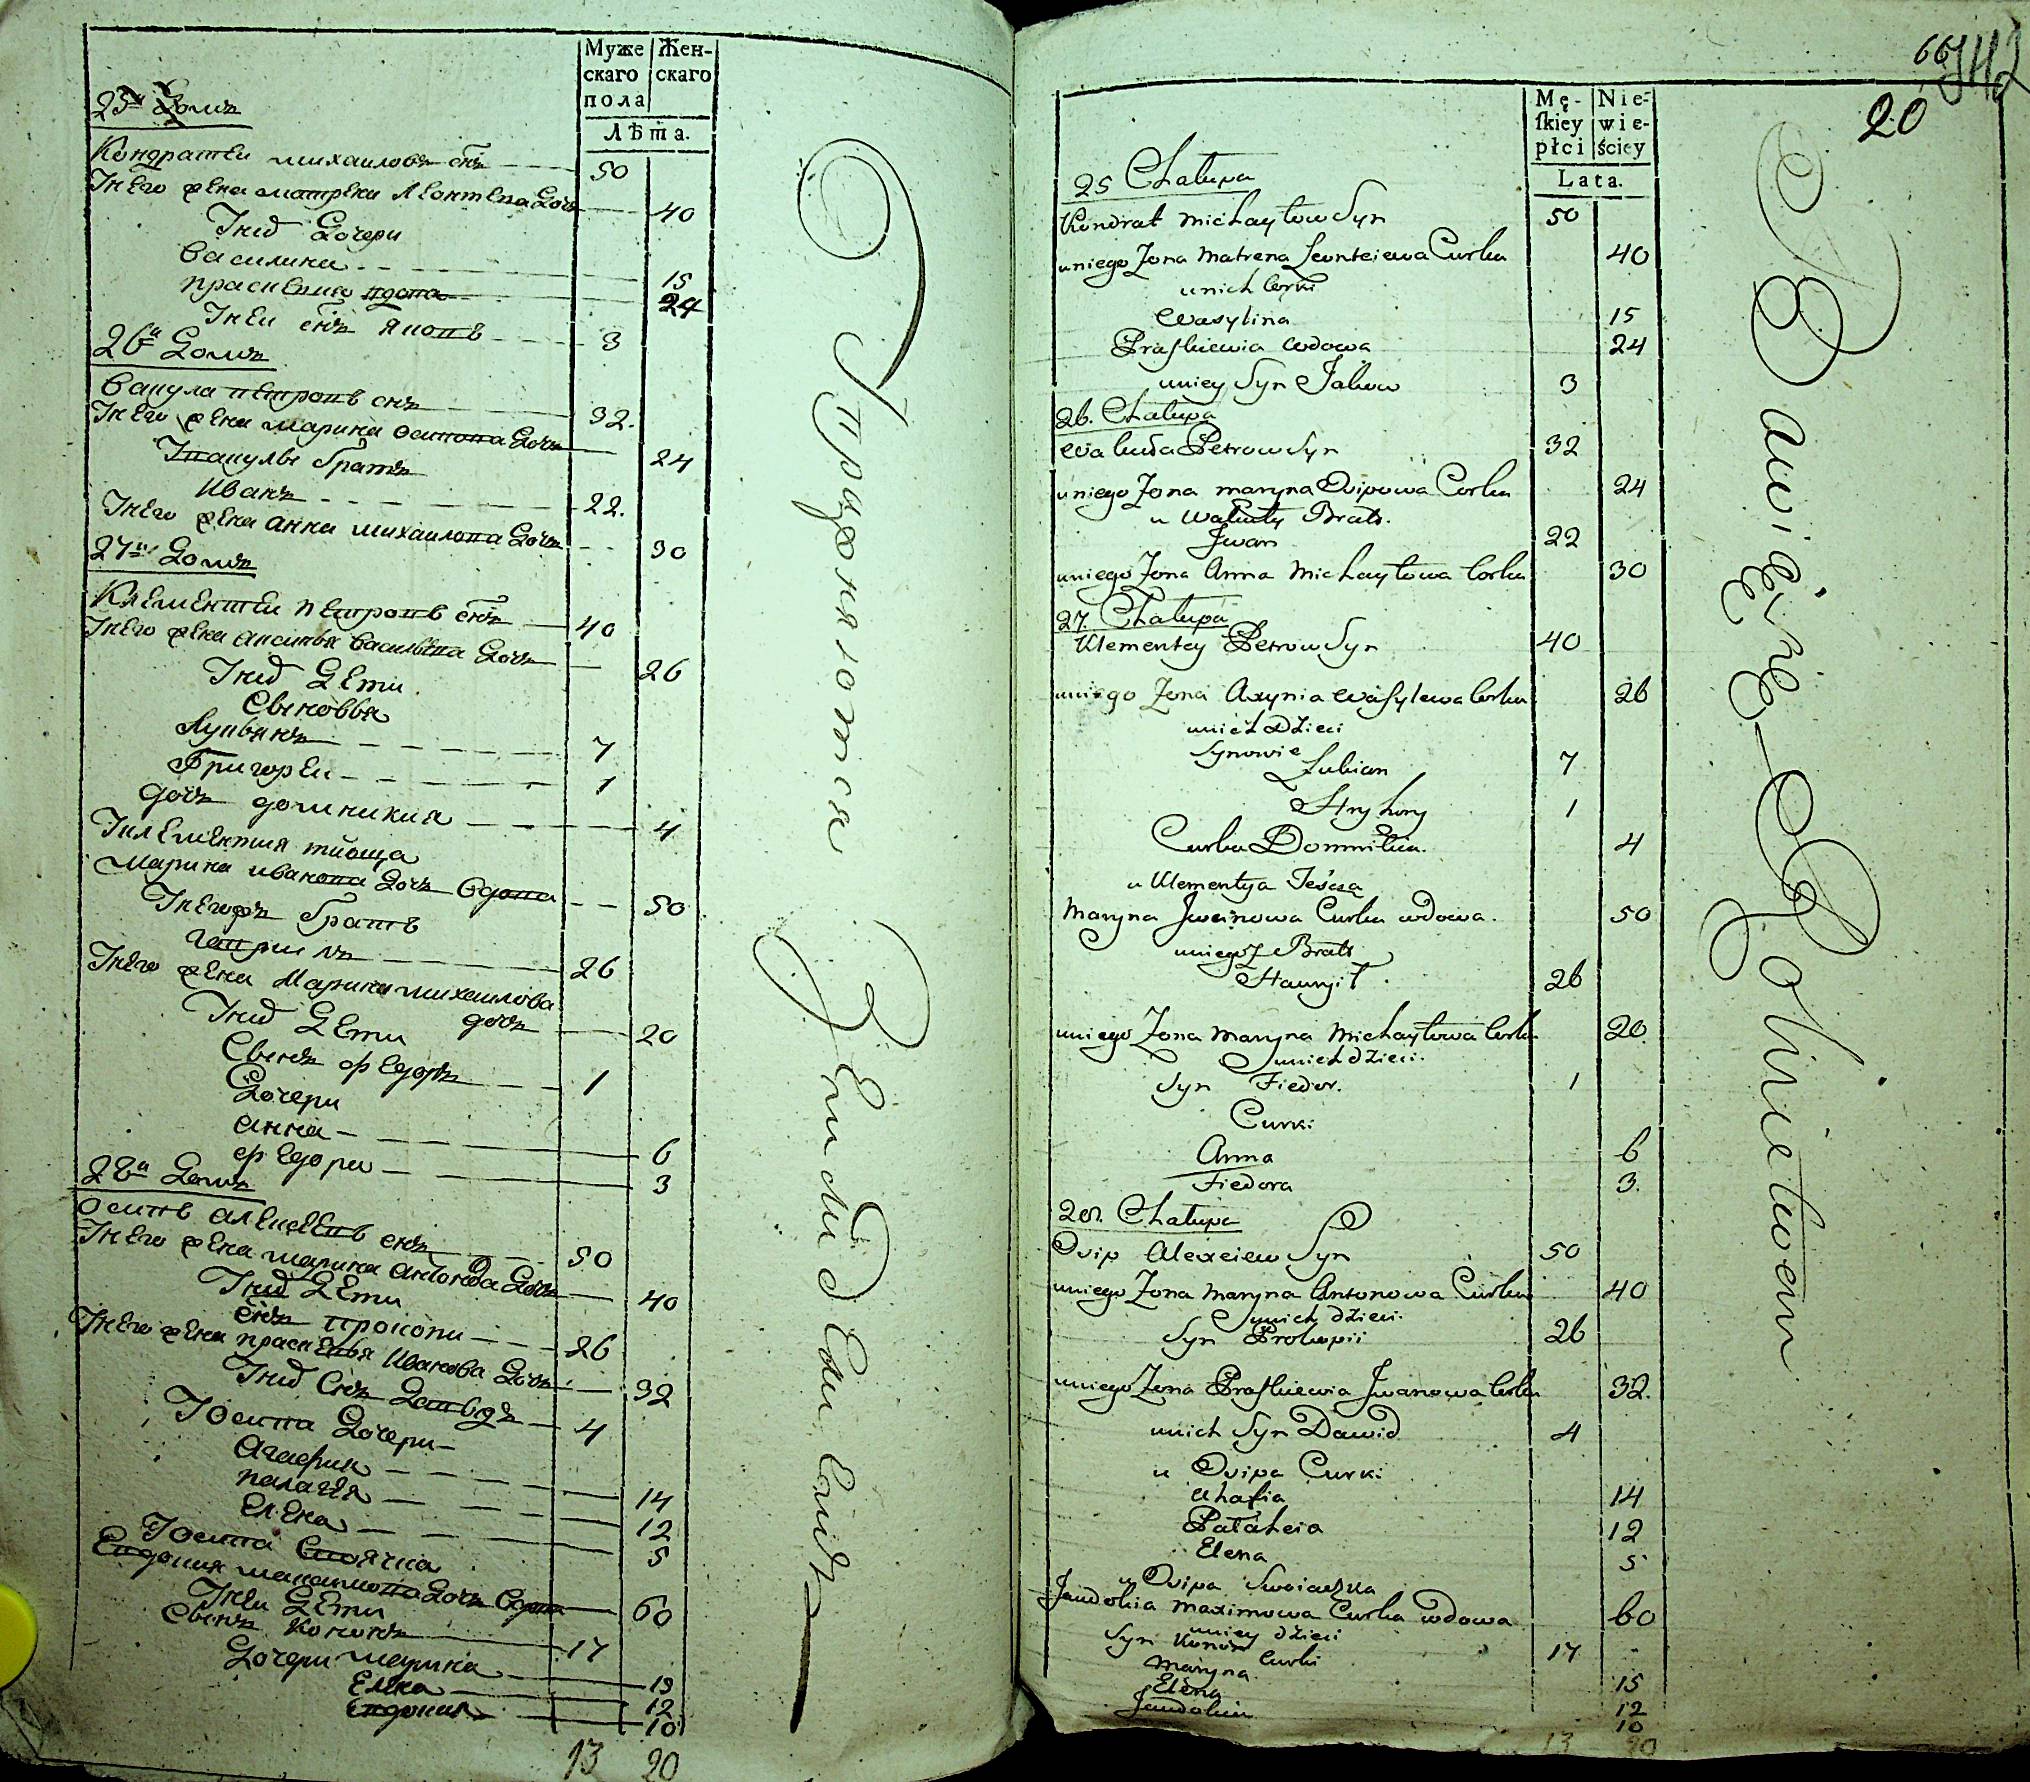 Муже
скаго
пола
Жен-
скаго
Лѣта.
25й Домъ
Кондратеи михаиловъ снъ 50
Унего жена матрена Леонтева дочь 40
Уних дочери
Василина 15
праскевия вдова 24
Унеи снъ яковъ 3
26й Домъ
Вакула петровъ снъ 32.
Унего жена марина осипова дочь 24
Увакулы братъ
Иванъ 22.
Унего жена анна михаилова дочь 30
27й Домъ
Клементеи петровъ снъ 40
Унего жена аксинья васильева дочь 26
Уних дети
Сыновья
Лукьянъ 7
Григореи 1
дочь домникия 4
Уклементия тиоща
Марина иванова дочь вдова 50
Унегожъ братъ
гаврилъ 26
Унего жена Марина михаилова
дочь 20
Уних дети
Сынъ федоръ 1
Дочери
анна 6
федора 3
28й Домъ
осипъ алексеевъ снъ 50
Унего жена марина антонова дочь 40
Уних дети
снъ прокопи 26
Унего жена праскевья Иванова дочь 32
Уних Снъ Давыдъ 4
Уосипа Дочери
Агафия 14
палагея 12
Елена 5
Уосипа Своячка
Евдокия макимова дочь вдова 60
Унеи дети
Сынъ кононъ 17
Дочери марина 15
Елена 12
Евдокия 10
13 20
Продолжается Земли веи Сеи Еииъ
66
342
20
Mę-
ſkiey
płci
Nie-
wie-
ściey
Lata.
25 Chałupa
Kondrat Michayłow Syn 50
uniego Zona Matrena Leonteiewa Curka 40
unich Corki
Wasylina 15
Praſkiewia wdowa 24
uniey Syn Jakow 3
26. Chałupa
Wakuła Petrow Syn 32
uniego Zona maryna Osipowa Corka 24
u Wakuły Brat.
Jwan 22
uniego Zona Anna Michayłowa Corka 30
27. Chałupa
Klementey Petrow Syn 40
uniego Zona Axynia Waſylewa Corka 26
unich Dzieci
Synowie
Łukian 7
Hryhory 1
Curka Domnikia. 4
u Klementya Teścza
Maryna Jwanowa Curka wdowa. 50
uniegoż Brat
Hawryił 26
uniego Zona Maryna Michayłowa Corka 20.
unich dzieci.
Syn Fiedor. 1
Curki
Anna 6
Fiedora 3.
28. Chałupa
Osip Alexeiew Syn 50
uniego Zona Maryna Antonowa Curka 40
unich dzieci.
Syn Prokopii 26
uniego Zona Praſkiewia Jwanowa Corka 32.
unich Syn Dawid 4
u Osipa Curki
Ahafia 14
Pałaheia 12
Elena 5
u Osipa Swoiaczka
Jewdokia Maximowa Curka wdowa 60
uniey dzieci
Syn Konon 17
Curki
Maryna 15
Elena 12
Jewdokia 10
13 20